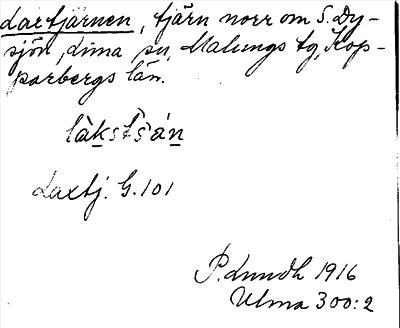 Laxtjärnen, tjärn norr om S. Dy-
sjön, Lima sn, Malungs tg, Kop-
parbergs län.
làkstšàn
Laxtj. G. 101
P. Lundh 1916
Ulma 300:2